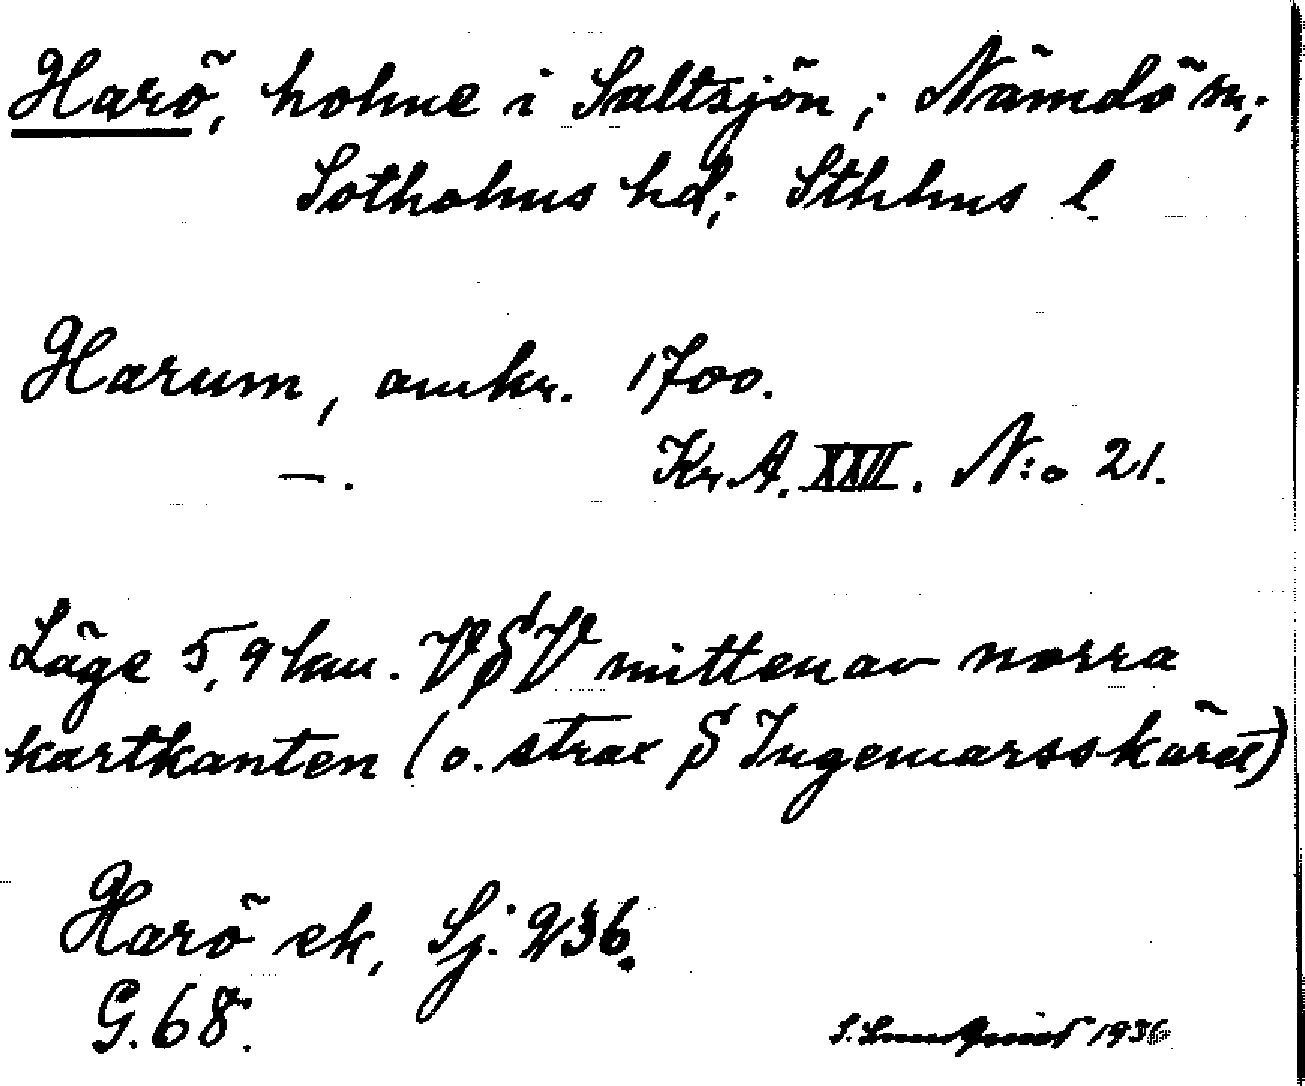 Harö, holme i Saltsjön; Nämdö sn;
Sotholms hd; Sthlms l.
Harum, omkr. 1700.
—. Kr.A. XXII. N:o 21.
Läge 5,9 km. VSV mitten av norra
kartkanten (o. strax S Ingemarsskäret)
Harö ek, Sj. 236.
G. 68.
1936